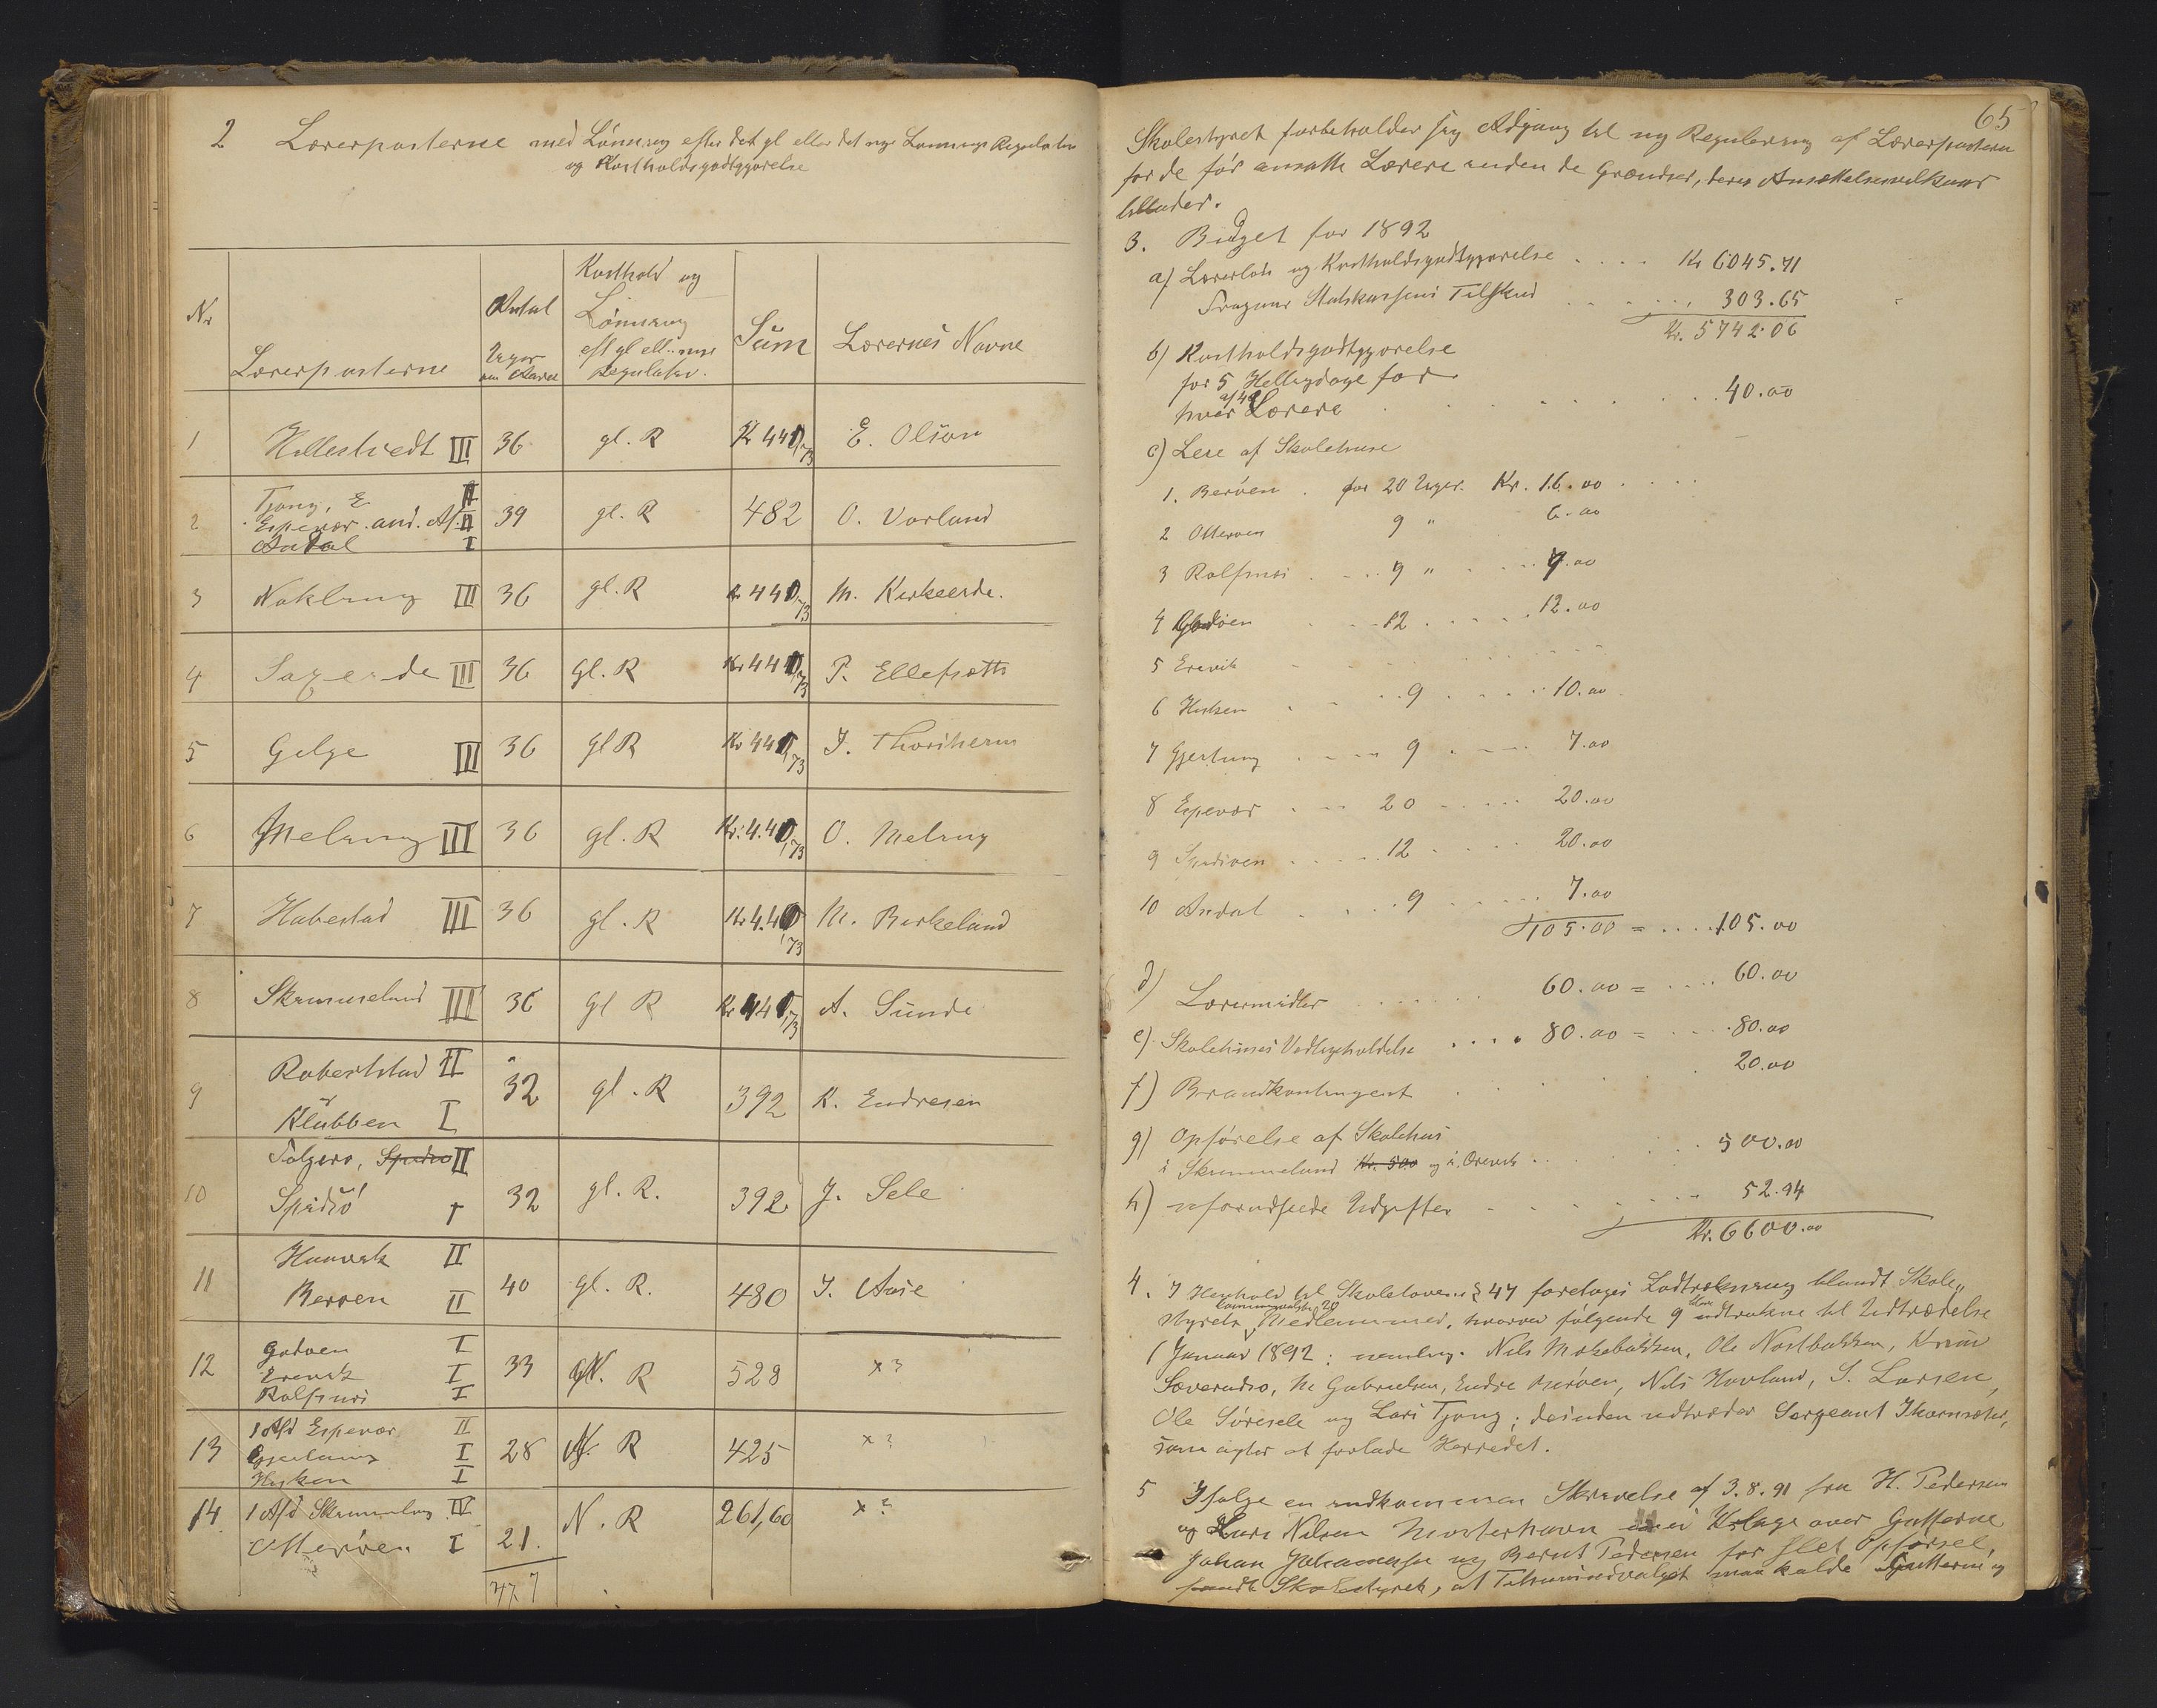 2 Lærerposterne med Lønning efter det gl eller det nye Lønnings Regulativ
og Kostholdsgodtgjørelse
Nr
Lærerposterne
Antal
Uger
om Aaret
Kosthold og
Lønning
eft gl ell. nye
Regulativ.
Sum
Lærernes Navne
1 Hillestvedt III 36 gl. R Kr 440,73 E. Olson
2 Tjong, E II
Espevær. and. Af. II 39 gl. R 482 O. Vorland
Andal I
3 Nakling III 36 gl. R Kr 440,73 M.
4 III 36 Gl. R Kr 440,73 P.
5 III 36 gl R Kr 440,73
6 Meling III 36 gl. R Kr. 440,73 O. Meling
7 Habestad III 36 gl. R Kr 440,73 M. Birkeland
8 Skimmeland III 36 Gl R Kr 440,73 A. Sunde
9 II
og 32 gl. R 392 K. Endresen
Klubben I
10 II
I 32 gl. R. 392 J. Sele
11 Haavik II
II 40 gl. R. 480 J. Aase
12 Godøen I
Erevik I 33 N. R 528 x?
Rolfsnes I
13 1 Afd Espevær II
I 28 N. R 425 x?
Hisken I
14 1 Afd IV N. R 261,60 x?
Otterøen I 21.
477
65
Skolestyret forbeholder sig Adgang til ny Regulering af Lærerposterne
for de før ansatte Lærere inden de Grændser, deres Ansættelsesvilkaar
tillader.
3. Budget for 1892
a) Lærerløn og Kostholdsgodtgjørelse .... Kr 6045.71
Fragaar Statskassens Tilskud ..... 303.65
Kr. 5742.06
b) Kostholdsgodtgjørelse
for 5 Helligdage for
hver af Lærere ....... 40.00
c) Leie af Skolehuse
1. Berøen . for 20 Uger. Kr. 16.00 ....
2 Otterøen 9 " 6.00
3 Rolfsnes ... 9 " ... 7.00
4 Godøen ... 12 ..... 12.00
5 Erevik
6 Hisken ... 9 ..... 10.00
7 Gjerlung .... 9 .... 7.00
8 Espevær ... 20 ..... 20.00
9 ..... 12 .... 20.00
10 Andal .... 9 ..... 7.00
105.00 = .... 105.00
d) Læremidler ...... 60.00 = .... 60.00
e) Skolehuses Vedligeholdelse .... 80.00 = .... 80.00
f) Brandkontingent . . . 20.00
g) Opførelse af Skolehus
i Skimmeland Kr. 500 og i Erevik ..... 500.00
h) uforudseede Udgifter ..... 52.94
Kr. 6600.00
4. I Henhold til Skolelovens § 47 foretoges Lodtrækning blandt Skole„
styrets kommunevalgte 20 Medlemmer, hvorved følgende 9 blev udtrukne til Udtrædelse
1 Januar 1892: nemlig. Nils Mokebakken, Ole Nostbakken, Knut
M Gabrielsen, Endre Berøen, Nils Hovland, S. Larsen,
Ole Sørsele og Lars Tjong; desuden udtræder Sergeant
som agter at forlade Herredet.
5 Ifølge en indkommen Skrivelse af 3.8.91 fra H. Pedersen
og Lars Nilsen Mosterhavn med Klage over Gutterne
Johan Johannessen og Bernt Pedersen for slet Opførsel,
fandt Skolestyret, at Tilsynsudvalget maa kalde Gutterne og